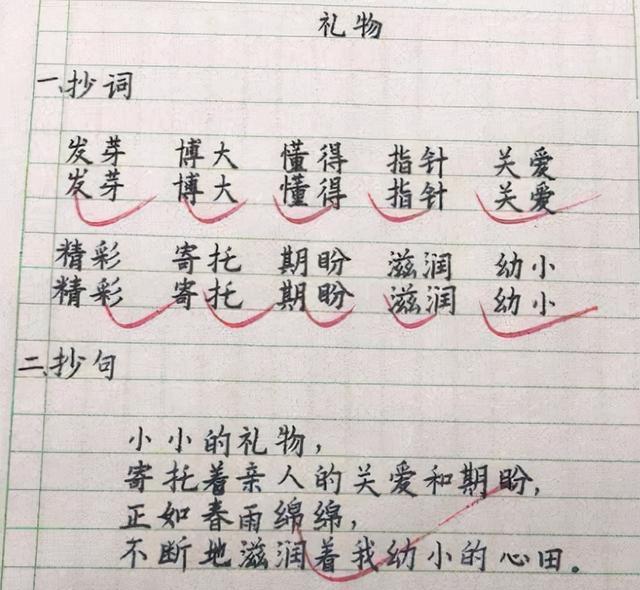 礼物
一、抄词
发芽 博大 懂得 指针 关爱
发芽 博大 懂得 指针 关爱
精彩 寄托 期盼 滋润 幼小
精彩 寄托 期盼 滋润 幼小
二、抄句
小小的礼物，
寄托着亲人的关爱和期盼，
正如春雨绵绵，
不断地滋润着我幼小的心田。